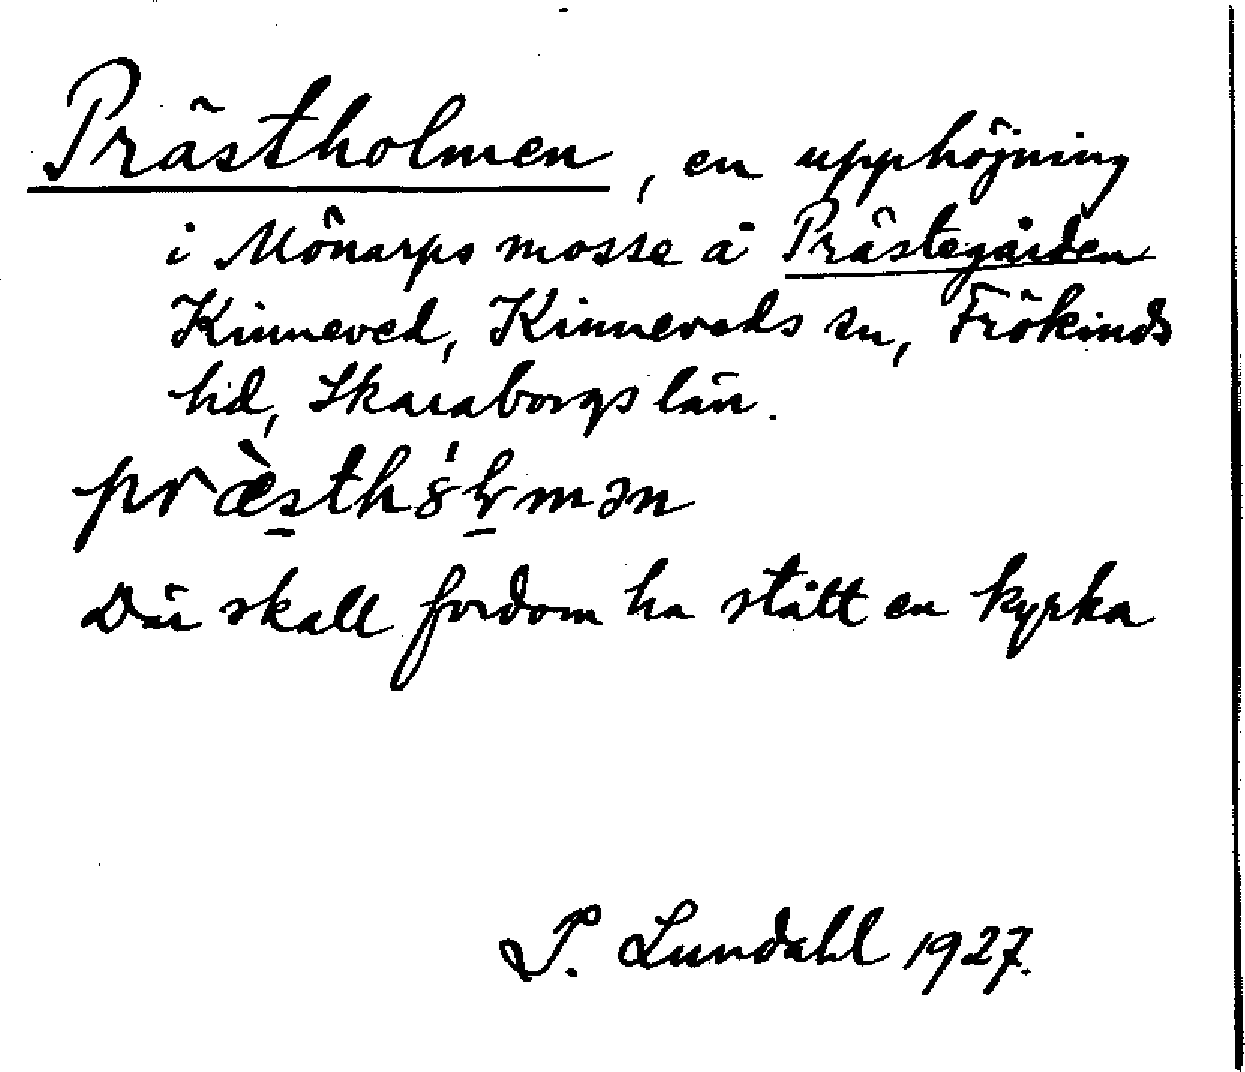 Prästholmen, en upphöjning
i Mönarps mosse å Prästegården
Kinneved, Kinneveds sn, Frökinds
hd, Skaraborgs län.
præ̀sthȯ́ɫmən
Där skall fordom ha stått en kyrka
P. Lundahl 1927.